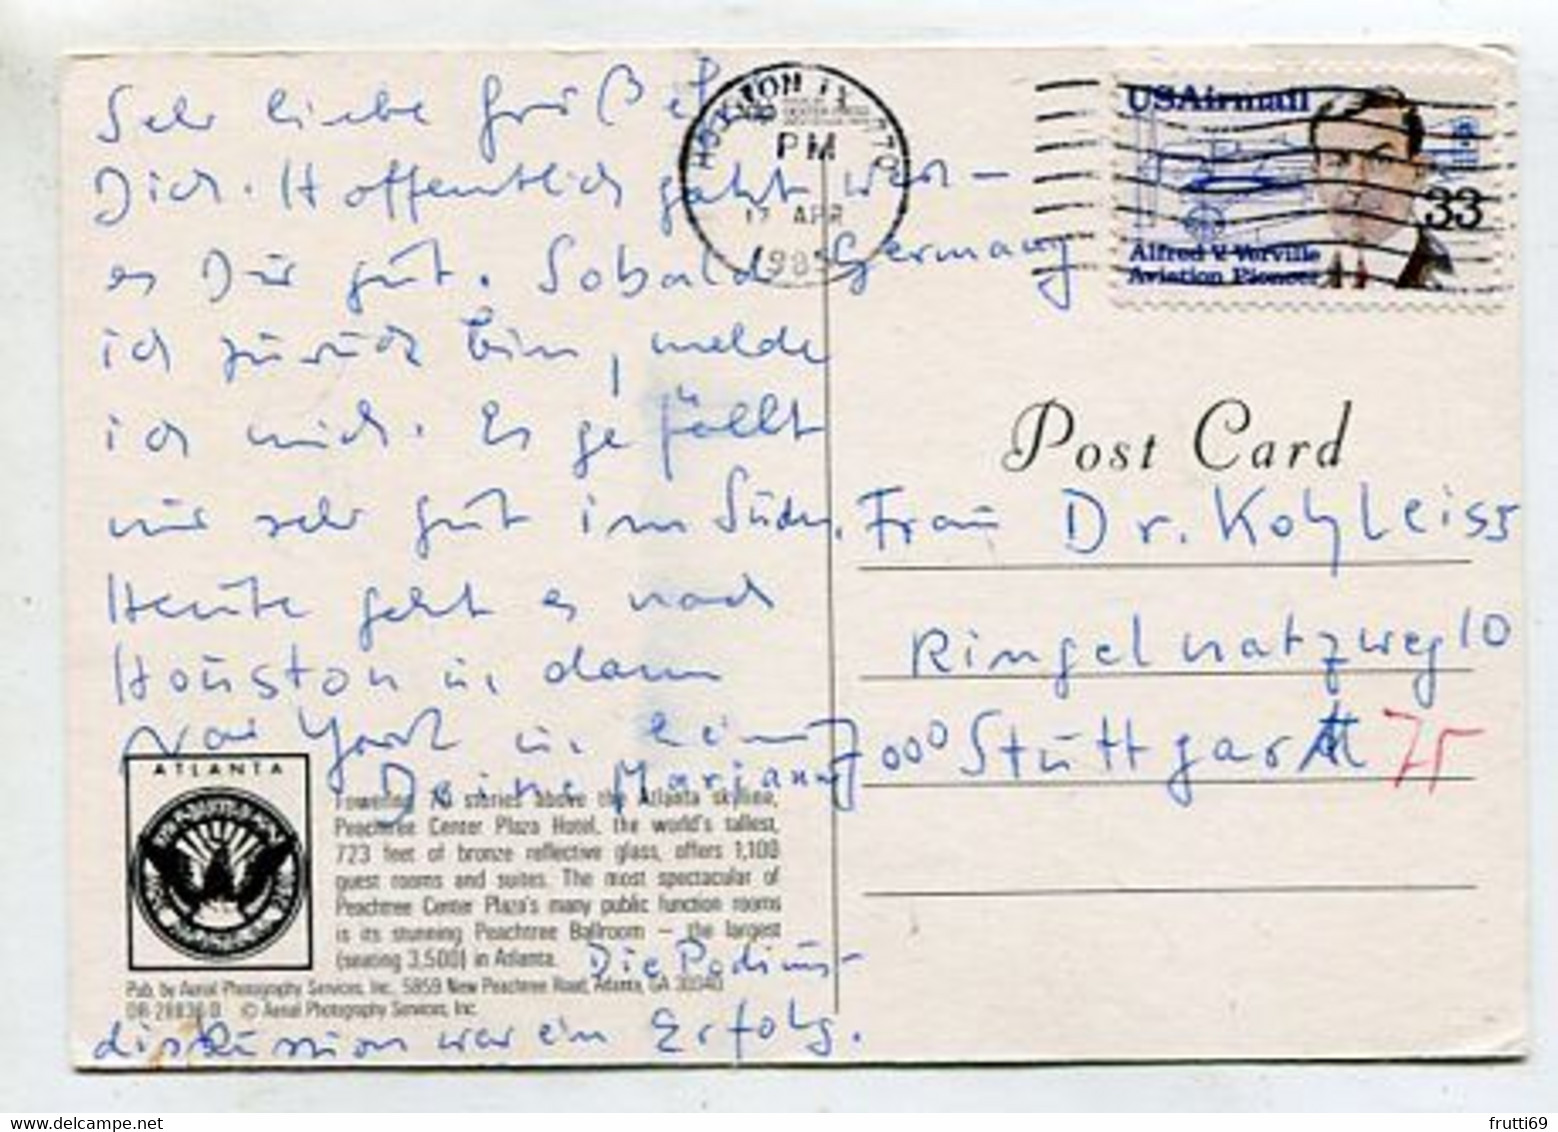 Sehr liebe Grüße
Dich. Hoffentlich geht
es Dir gut. Sobald
ich zurück bin, melde
ich mich. Es gefällt
mir sehr gut im Süden.
Heute geht es nach
Houston u. dann
New York u.
Deine Marianne
Die Podiums-
diskussion war ein Erfolg.
HOUSTON TX 770
PM
17 APR
198
Germany
USAirmail
33
Alfred V. Verville
Aviation Pioneer
Post Card
Frau Dr. Kohleiss
Ringelnatzweg 10
7000 Stuttgart 75
ATLANTA
Towering 70 stories above the Atlanta skyline,
Peachtree Center Plaza Hotel, the world's tallest,
723 feet of bronze reflective glass, offers 1,100
guest rooms and suites. The most spectacular of
Peachtree Center Plaza's many public function rooms
is its stunning Peachtree Ballroom — the largest
(seating 3,500) in Atlanta.
Pub. by Aerial Photography Services, Inc., 5859 New Peachtree Road, Atlanta, GA 30340
© Aerial Photography Services, Inc.
frutti69